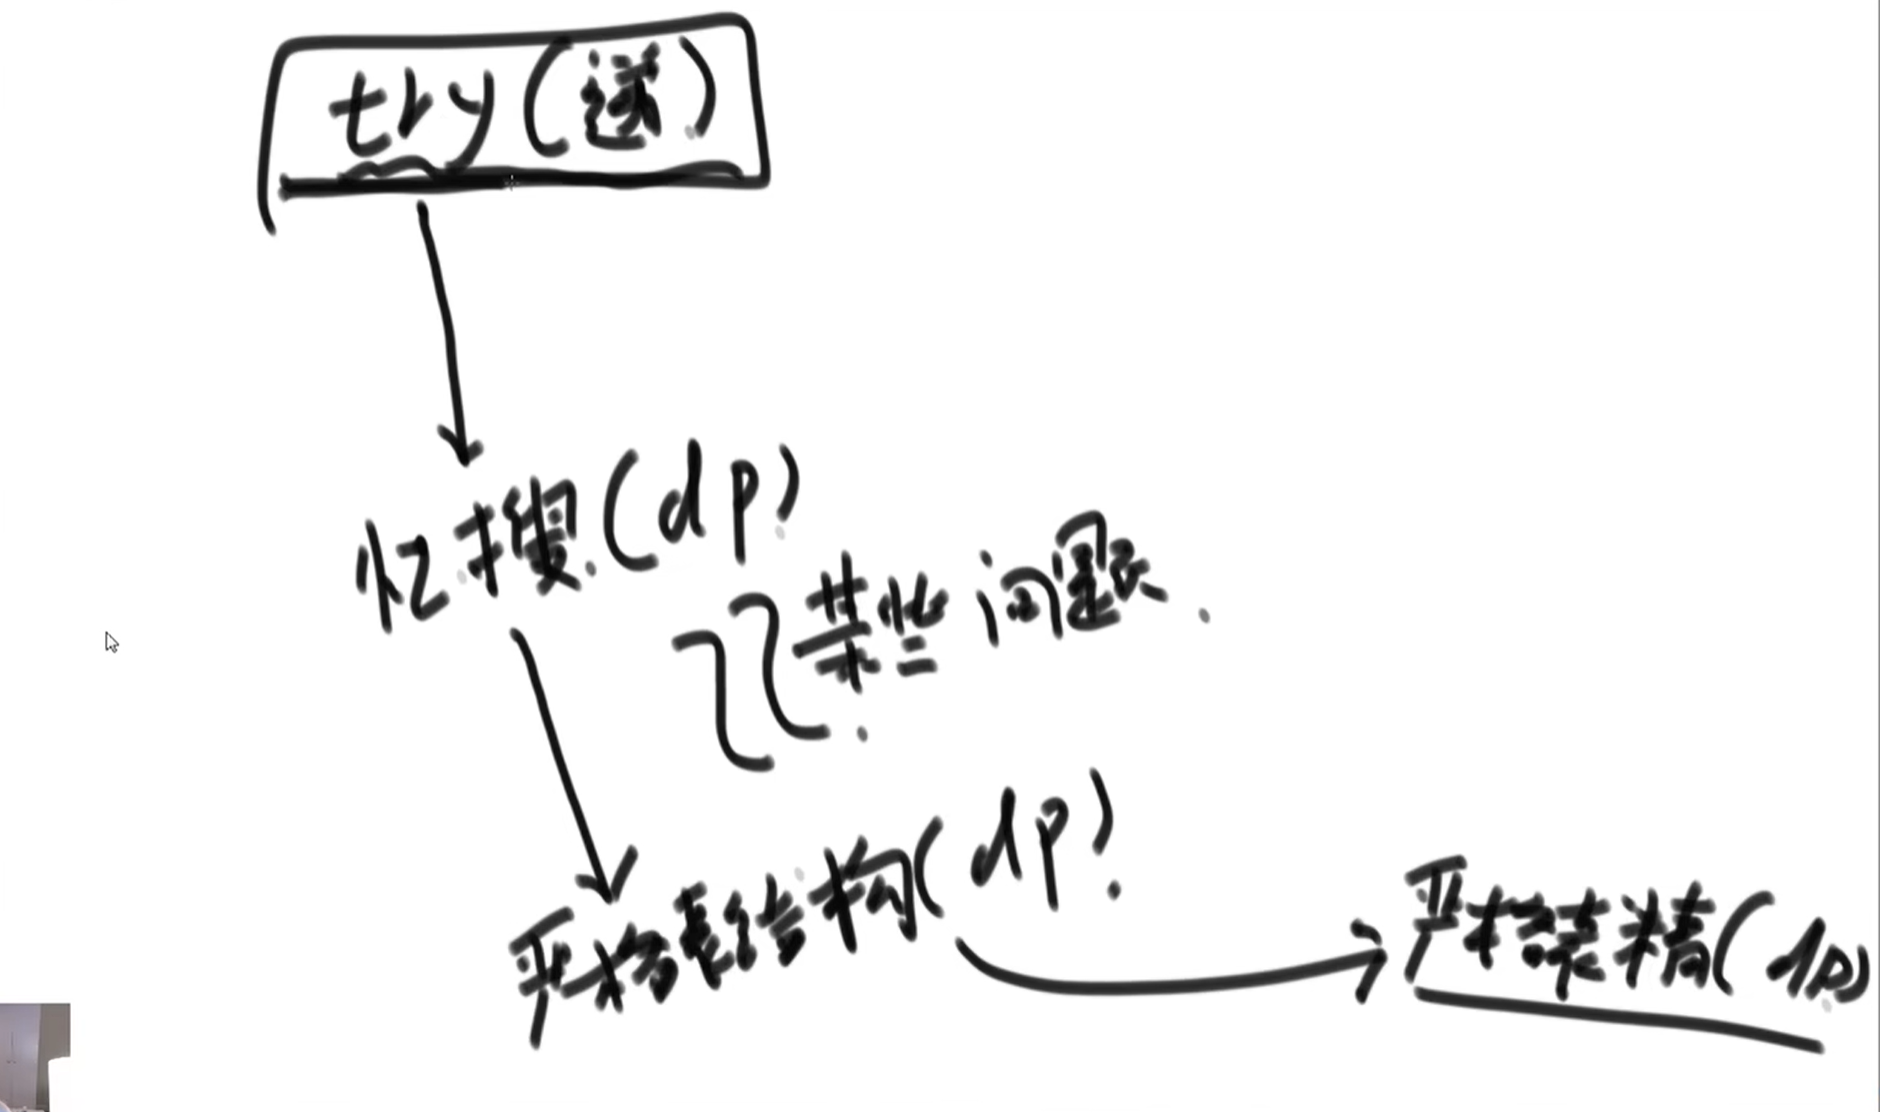 try(递)
忆搜(dp)
某些问题.
严格表结构(dp)
严格表精(dp)